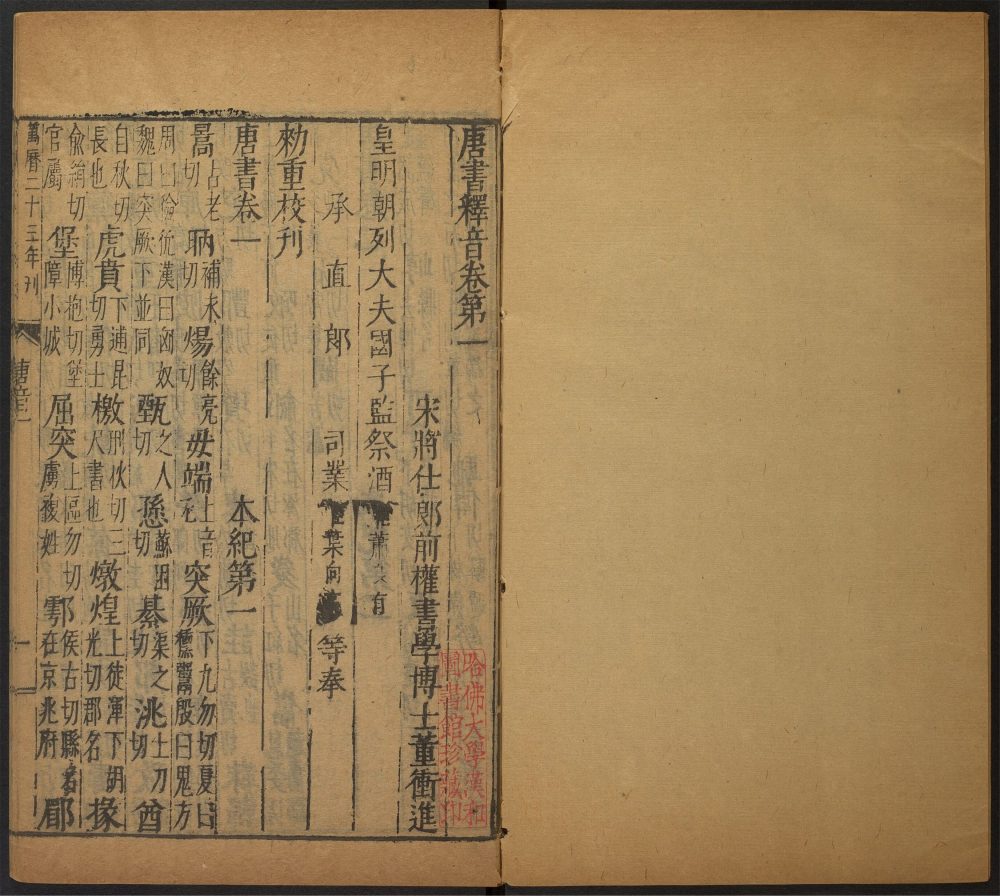 唐書釋音卷第一
宋將仕郎前權書學博士董衝進
皇明朝列大夫國子監祭酒 蕭 有
承直郎司業 葉向 等奉
勑重校刊
唐書卷一 本紀第一
暠占老切 昞補永切 煬餘亮切 毋端上音 突厥下九勿切夏曰
獯鬻殷曰鬼方
周曰獫狁漢曰匈奴
魏曰突厥下並同 甄之人切 愻蘇困切 綦渠之切 洮土刀切 酋
自秋切
長也 虎賁下逋昆切勇士 檄刑狄切三尺書也 燉煌上徒渾下胡光切郡名 掾
俞絹切
官屬 堡博抱切堡障小城 屈突上區勿切虜複姓 鄠侯古切縣名在京兆府 郿
萬曆二十三年刊
唐音一
一
哈佛大學漢和
圖書館珍藏印